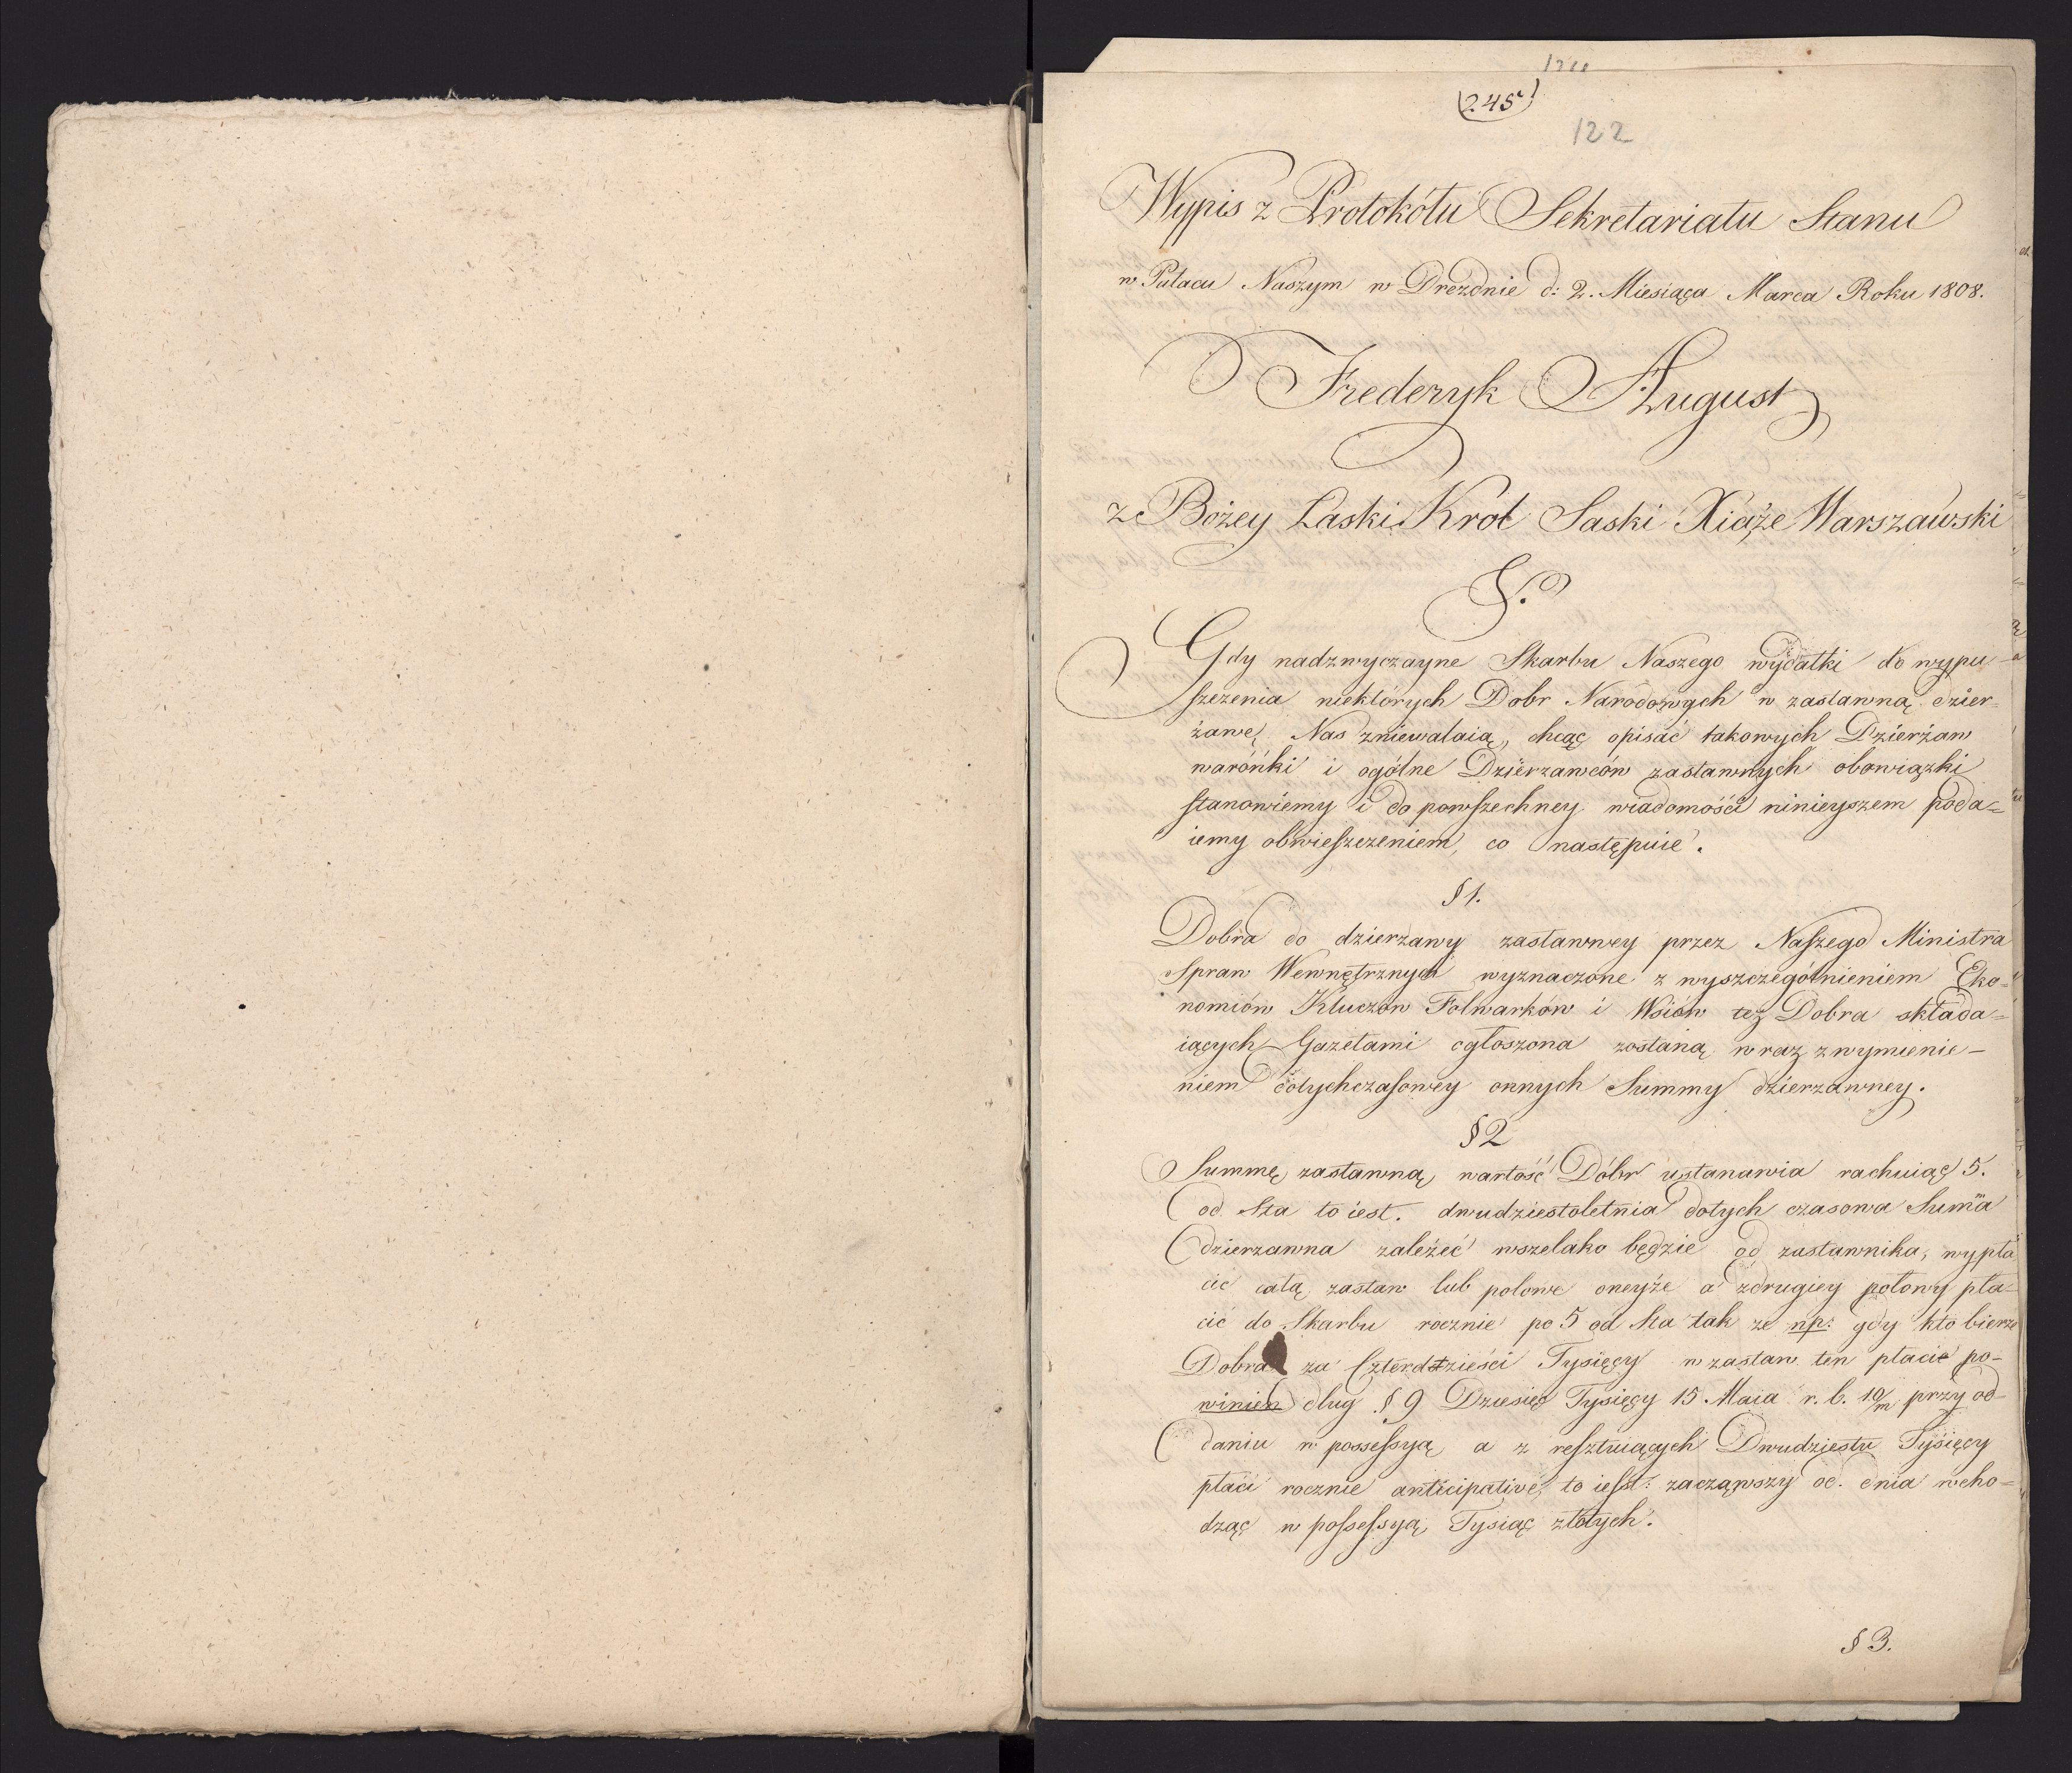 (245)
122
Wypis z Protokółu Sekretariatu Stanu
w Pałacu Naszym w Dreżdnie d: 2. Miesiąca Marca Roku 1808.
Frederyk August
z Bożey Łaski Krol Saski Xiąże Warszawski
&.
Gdy nadzwyczayne Skarbu Naszego wydatki do wypu-
szczenia niektórych Dobr Narodowych w zastawną dzier-
żawę, Nas zniewalaią, chcąc opisać takowych Dzierżaw
warónki i ogólne Dzierzawców zastawnych obowiązki
stanowiemy i do powszechney wiadomości ninieyszem poda-
iemy obwieszczeniem, co następuie.
§ 1.
Dobra do dzierzawy zastawney przez Naszego Ministra
Spraw Wewnętrznych wyznaczone z wyszczególnieniem Eko-
nomiów Kluczów Folwarków i Wsiów też Dobra składa-
iących Gazetami ogłoszona zostaną wraz z wymienie-
niem dotychczasowey onnych Summy dzierzawney.
§ 2
Summę zastawną wartość Dóbr ustanawia rachuiąc 5.
od Sta to iest. dwudziestoletnia dotych czasowa Suma
dzierzawna zależeć wszelako będzie od zastawnika, wypła
cić całą zastaw lub polowe oneyże a z drugiey połowy pła-
cić do Skarbu rocznie po 5 od Sta tak ze np: gdy kto bierze
Dobra za Czterdzieści Tysięcy w zastaw ten płacić po-
winien dług § 9 Dziesięć Tysięcy 15 Maia r. b. 10/m przy od-
daniu w possessyą a z resztuiących Dwudziestu Tysięcy
płaci rocznie anticipative, to iest: zacząwszy od dnia wcho-
dząc w possessyą Tysiąc złotych.
§ 3.